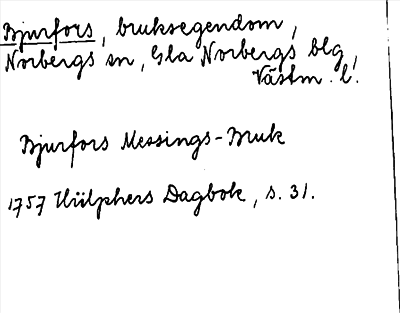 Bjurfors, bruksegendom,
Norbergs sn, Gla Norbergs blg,
Västm. l.
Bjurfors Messings-Bruk
1757 Hülphers Dagbok, s. 31.